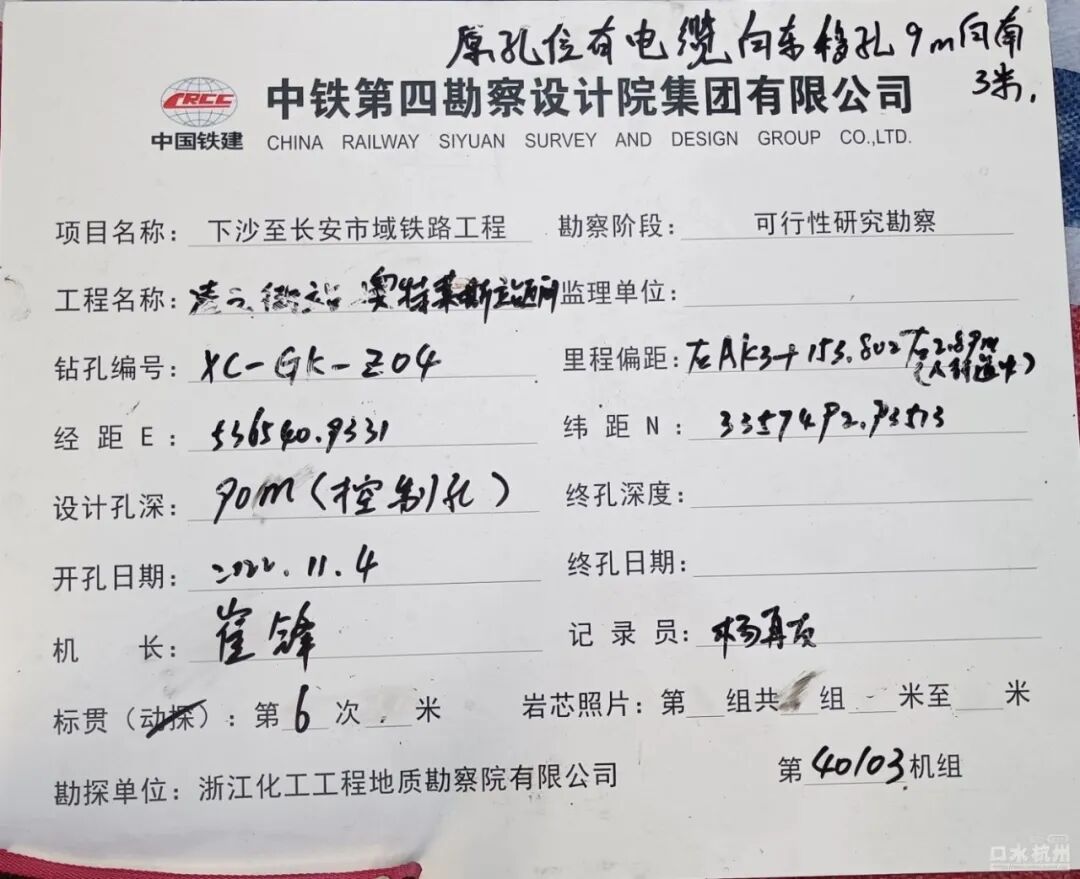 原孔位有电缆 向东移孔9m向南
3米.
CRCC
中国铁建
中铁第四勘察设计院集团有限公司
CHINA RAILWAY SIYUAN SURVEY AND DESIGN GROUP CO.,LTD.
项目名称: 下沙至长安市域铁路工程 勘察阶段: 可行性研究勘察
工程名称: 奥特莱斯站 监理单位:
钻孔编号: XC-GK-Z04 里程偏距: 右AK3+153.802右2.89m
(人行道中)
经距E: 536540.9331 纬距N: 3357492.93513
设计孔深: 90m(控制孔) 终孔深度:
开孔日期: 2022.11.4 终孔日期:
机长: 崔锋 记录员: 杨再
标贯(动探): 第6次 米 岩芯照片: 第 组共 组 米至 米
勘探单位: 浙江化工工程地质勘察院有限公司 第40103机组
口水杭州